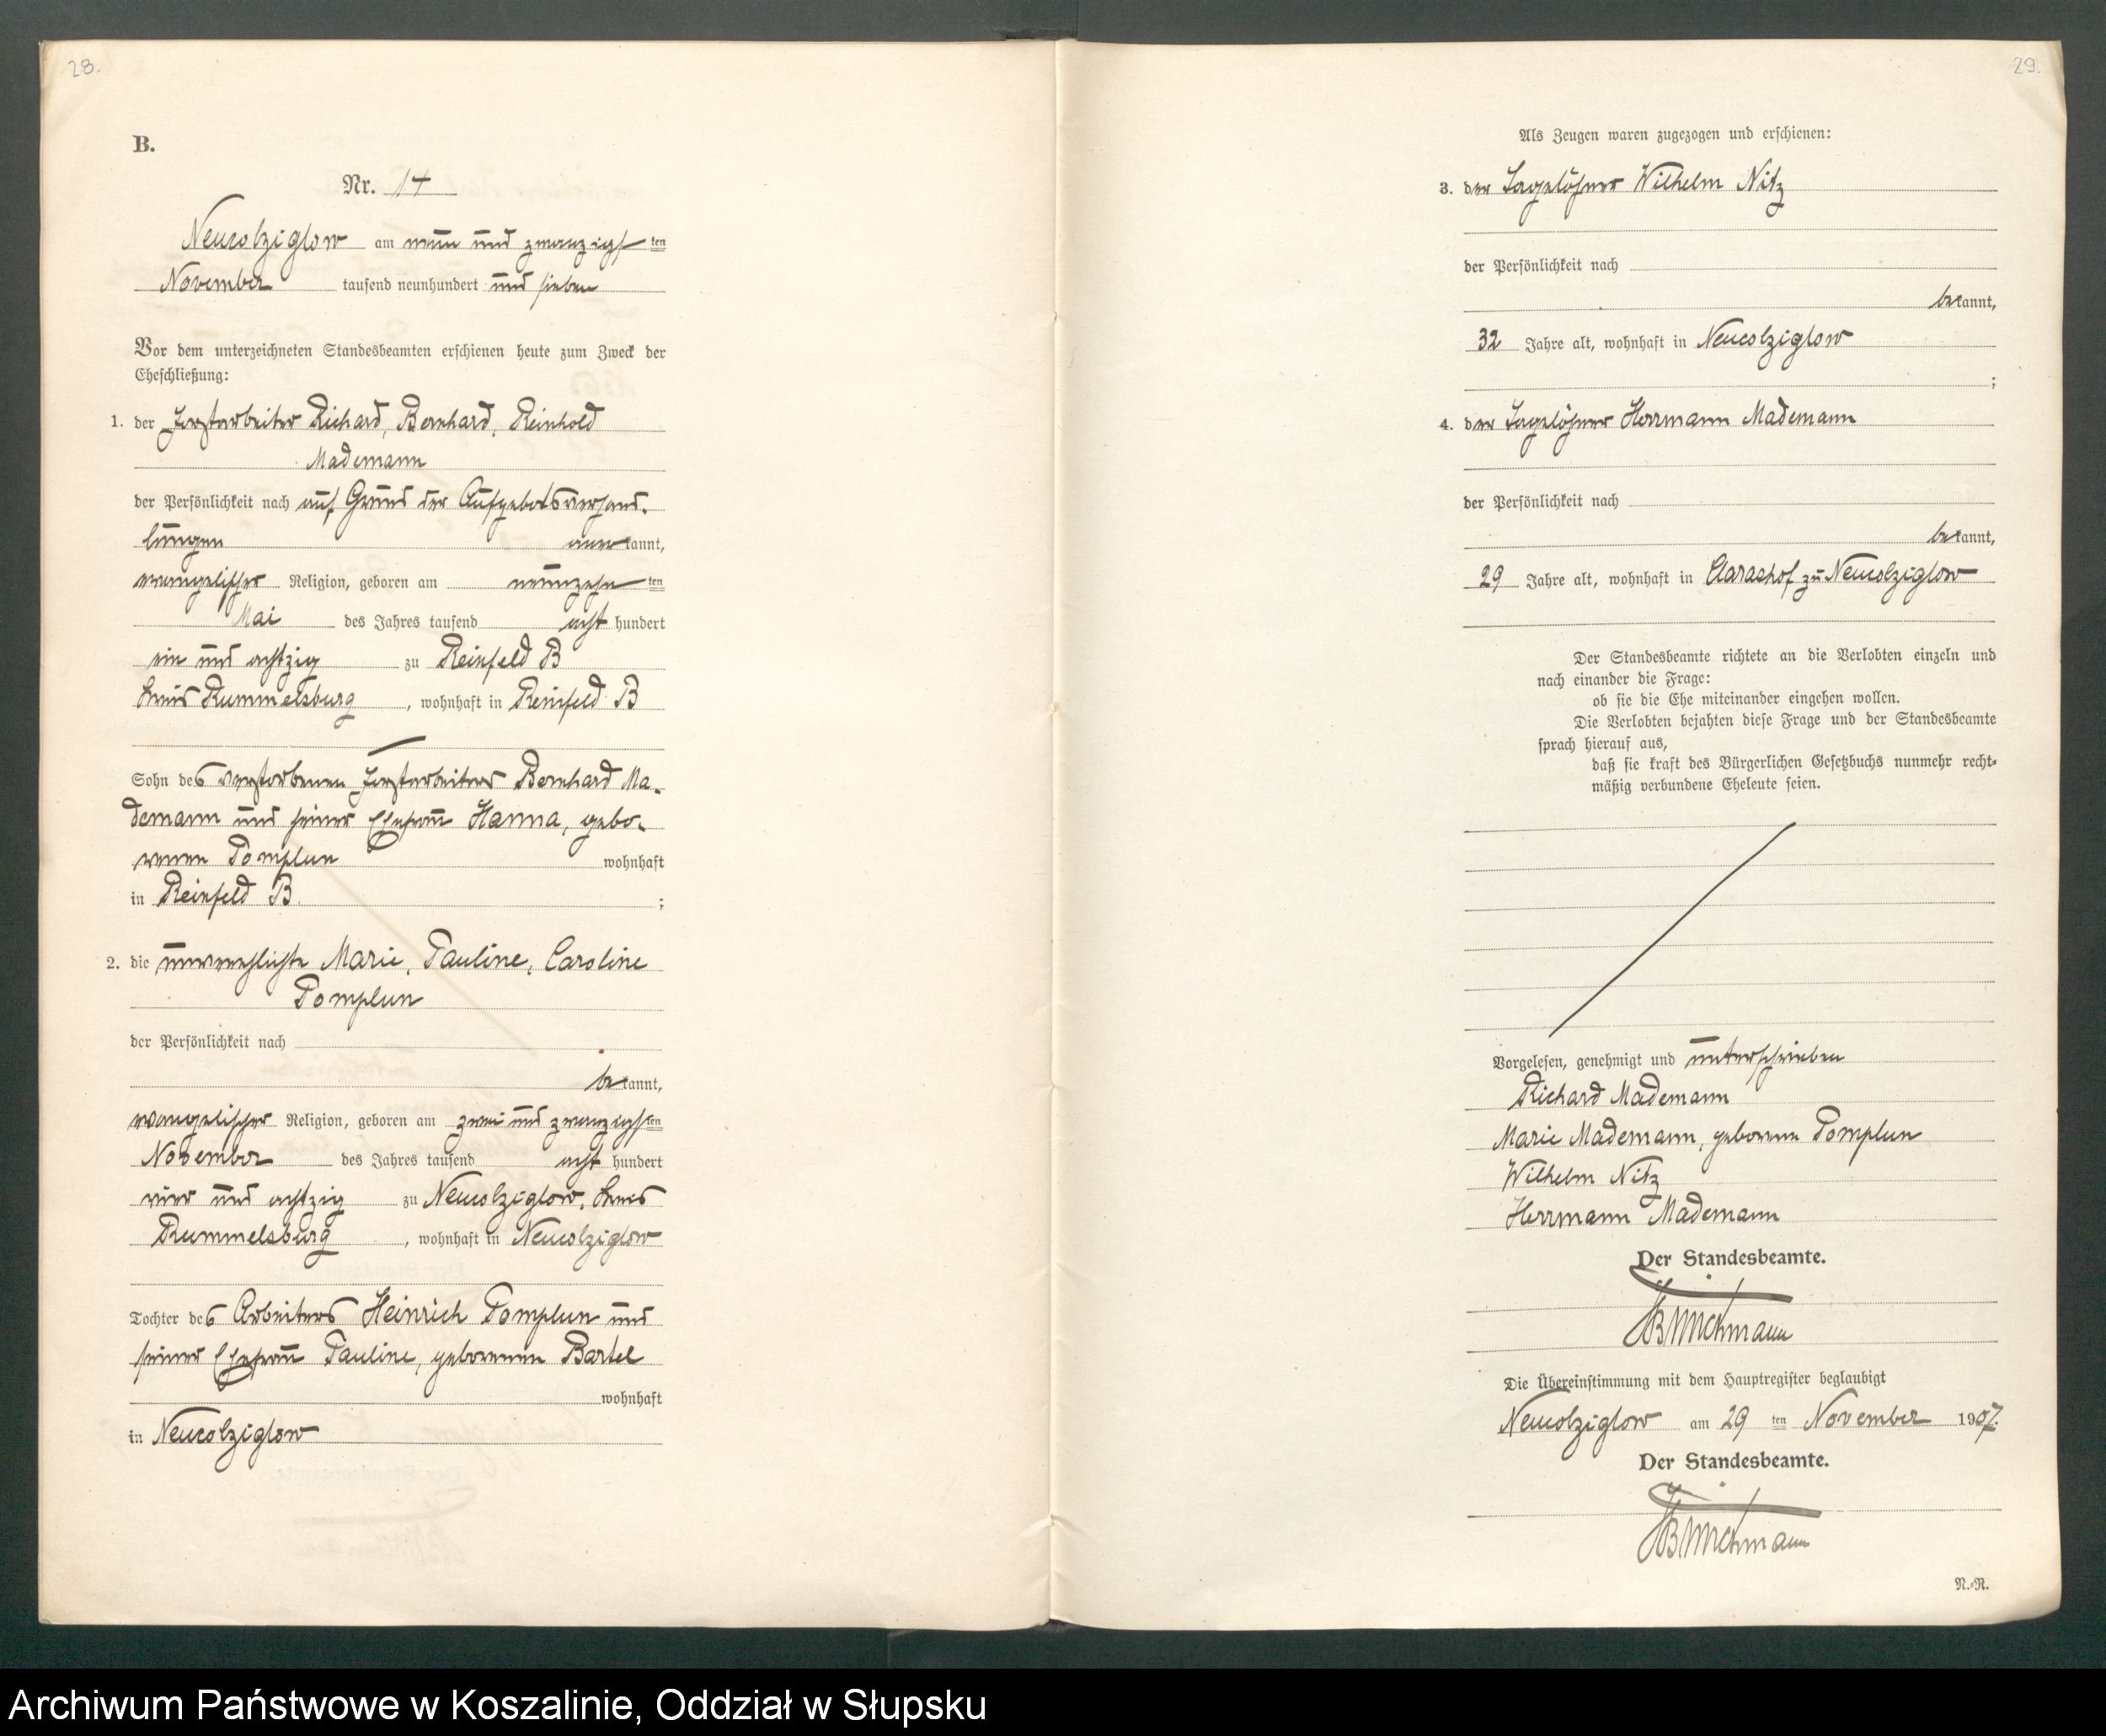 28.
B.
Nr. 14
Neucolziglow am neun und zwanzigsten
November tausend neunhundert und sieben
Vor dem unterzeichneten Standesbeamten erschienen heute zum Zweck der
Eheschließung:
1. der Forstarbeiter Richard, Bernhard, Reinhold
Mademann
der Persönlichkeit nach auf Grund der Aufgebotsverhand-
lungen anerkannt,
evangelischer Religion, geboren am neunzehnten
Mai des Jahres tausend acht hundert
ein und achtzig zu Reinfeld B
Kreis Rummelsburg, wohnhaft in Reinfeld B
Sohn des verstorbenen Forstarbeiters Bernhard Ma-
demann und seiner Ehefrau Hanna, gebo-
renen Pomplun wohnhaft
in Reinfeld B.;
2. die unverehelichte Marie, Pauline, Caroline
Pomplun
der Persönlichkeit nach
bekannt,
evangelischer Religion, geboren am zwei und zwanzigsten
November des Jahres tausend acht hundert
vier und achtzig zu Neucolziglow, Kreis
Rummelsburg, wohnhaft in Neucolziglow
Tochter des Arbeiters Heinrich Pomplun und
seiner Ehefrau Pauline, geborenen Bartel
wohnhaft
in Neucolziglow
29.
Als Zeugen waren zugezogen und erschienen:
3. der Tagelöhner Wilhelm Nitz
der Persönlichkeit nach
bekannt,
32 Jahre alt, wohnhaft in Neucolziglow
;
4. der Tagelöhner Herrmann Mademann
der Persönlichkeit nach
bekannt,
29 Jahre alt, wohnhaft in Clarashof zu Neucolziglow
Der Standesbeamte richtete an die Verlobten einzeln und
nach einander die Frage:
ob sie die Ehe miteinander eingehen wollen.
Die Verlobten bejahten diese Frage und der Standesbeamte
sprach hierauf aus,
daß sie kraft des Bürgerlichen Gesetzbuchs nunmehr recht-
mäßig verbundene Eheleute seien.
Vorgelesen, genehmigt und unterschrieben
Richard Mademann
Marie Mademann, geborene Pomplun
Wilhelm Nitz
Herrmann Mademann
Der Standesbeamte.
Die Übereinstimmung mit dem Hauptregister beglaubigt
Neucolziglow am 29 ten November 1907.
Der Standesbeamte.
N.-R.
Archiwum Państwowe w Koszalinie, Oddział w Słupsku